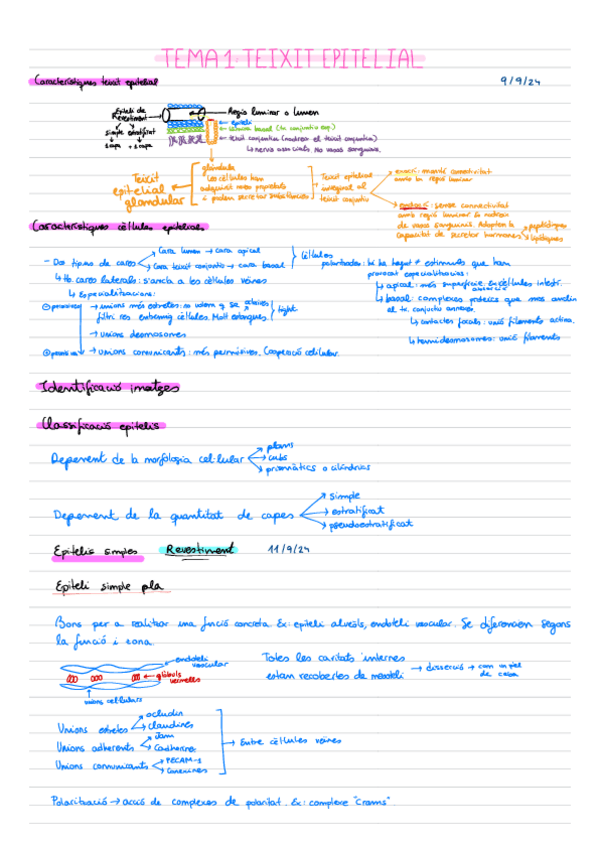 TEMA 1: TEIXIT EPITELIAL
Característiques teixit epitelial
9/9/24
Epiteli de Revestiment
simple estratificat
1 capa + 1 capa
Regió luminar o lumen
epiteli
làmina basal (tx conjuntiu esp.)
teixit conjuntiu (nodreix el teixit conjuntiu)
nervis associats. No vasos sanguinis.
Teixit epitelial glandular
glàndula
Les cèl·lules han adquirit noves propietats
poden secretar substàncies
Teixit epitelial integral al teixit conjuntiu
exocrí: manté connectivitat amb la regió luminar
endocrí: sense connectivitat amb regió luminar
de vasos sanguinis. Adopten la capacitat de secretar hormones
peptídiques
lipídiques
Característiques cèl·lules epitelials
- Dos tipus de cares
Cara lumen → cara apical
Cara teixit conjuntiu → cara basal
Cèl·lules polaritzades: hi ha hagut + estímuls que han provocat especialitzacions:
Hi. cares laterals: s'ancla a les cèl·lules veïnes
↳ Especialitzacions:
→ apical: més superfície. Ex cèl·lules intestí.
→ basal: complexos proteics que mos anclin al tx. conjuntiu annexes.
↳ contactes focals: unió filaments actina.
↳ hemidesmosomes: unió filaments
→ unions estretes: no volem q se filtri res entremig cèl·lules. Molt estanques
tight
→ unions desmosomes
→ unions comunicants: més permissives. Cooperació cel·lular.
Identificació imatges
Classificació epitelis
Depenent de la morfologia cel·lular
plans
cubs
prismàtics o cilíndrics
Depenent de la quantitat de capes
simple
estratificat
pseudoestratificat
Epitelis simples Revestiment 11/9/24
Epiteli simple pla
Bons per a realitzar una funció concreta. Ex: epiteli alveols, endoteli vascular. Se diferencien segons
la funció i zona.
endoteli vascular
glòbuls vermells
unions cel·lulars
Totes les cavitats internes
estan recobertes de mesoteli
→ dissecció → com un pel de ceba
Unions estretes
ocludin
claudines
Unions adherents
Jam
Cadherine
Unions comunicants
PECAM-1
Conexines
→ Entre cèl·lules veïnes
Polarització → acció de complexes de polaritat. Ex: complexe "Crums".